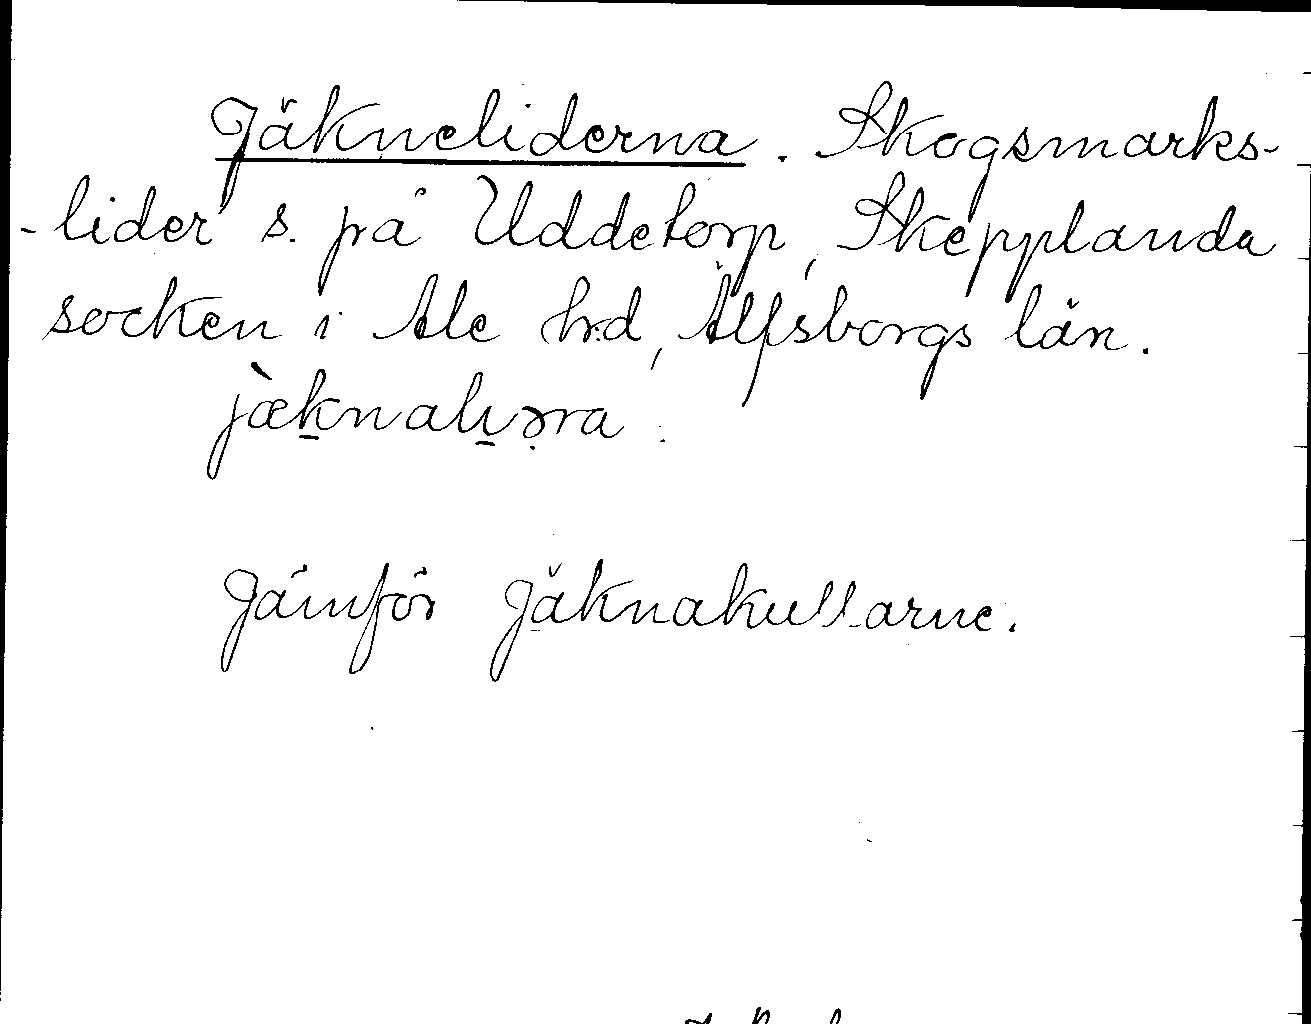 Jäkneliderna. Skogsmarks-
-lider s. på Uddetorp, Skepplanda
socken i Ale hd, Älfsborgs län.
Jämför Jäknakullarne.